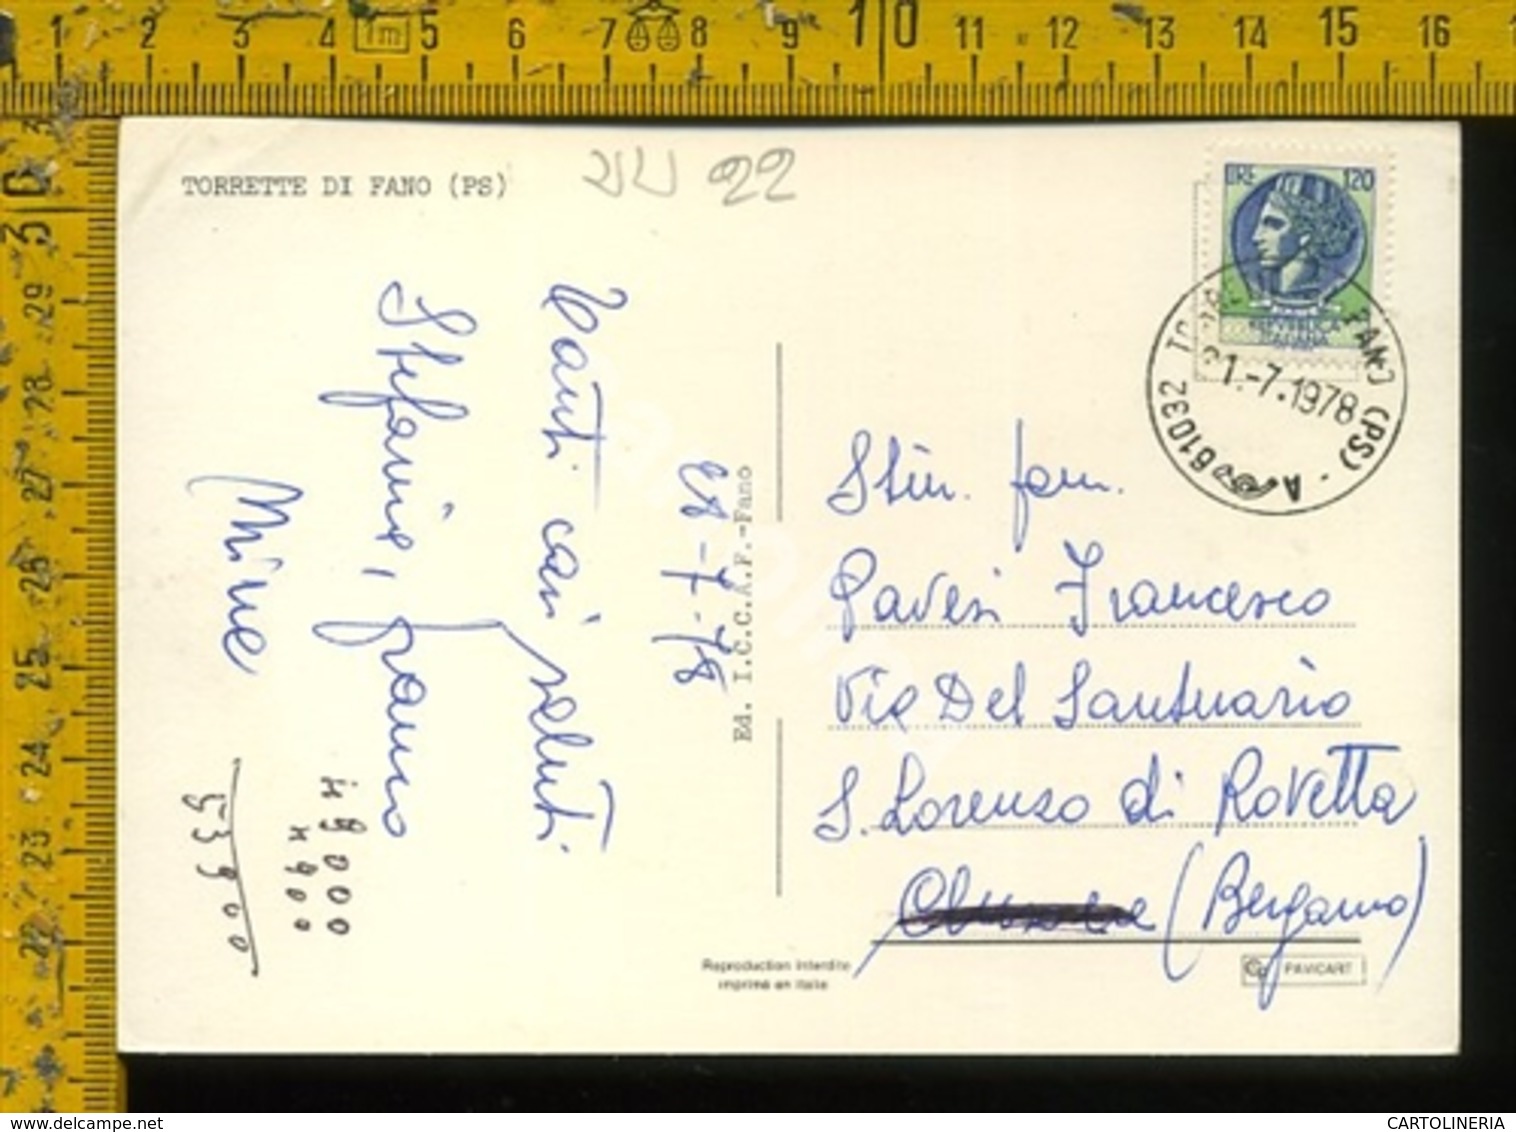 TORRETTE DI FANO (PS)
22
LIRE 120
REPUBBLICA
ITALIANA
1.-7.1978
61032
FANO (PS) · A.
28-7-78
Tanti cari saluti
Stefania, franco
Mine
49000
4900
53900
Ed. I.C.C.A.F.-Fano
Stim. fam.
Pavesi Francesco
Via Del Santuario
S. Lorenzo di Rovetta
(Bergamo)
Reproduction interdite
imprimé en Italie
PAVICART
1 2 3 4 1m 5 6 7 8 9 10 11 12 13 14 15 16
30
29
28
27
26
25
24
23
22
www.delcampe.net
CARTOLINERIA